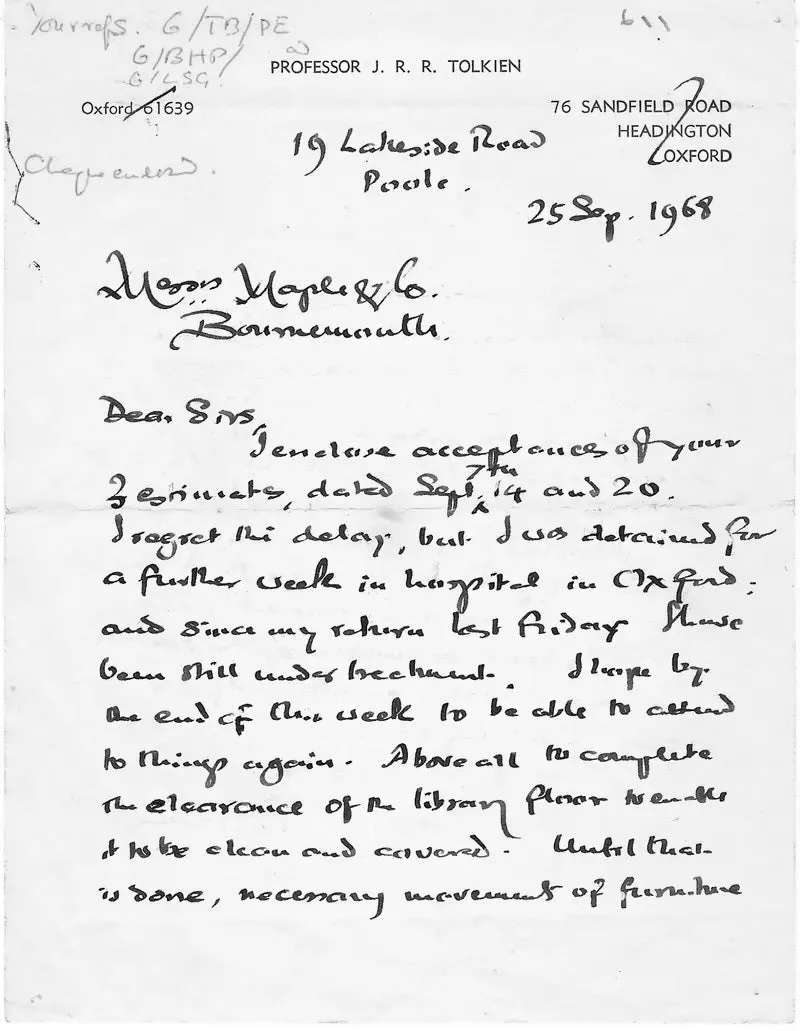 Your refs. G/TB/PE
G/BHP/
G/LSG
611
PROFESSOR J. R. R. TOLKIEN
Oxford 61639
76 SANDFIELD ROAD
HEADINGTON
OXFORD
Cheque enclosed.
19 Lakeside Road
Poole.
25 Sep. 1968
Messrs Maple & Co.
Bournemouth.
Dear Sirs,
I enclose acceptances of your
7th
3 estimates, dated Sept. 14 and 20.
I regret the delay, but I was detained for
a further week in hospital in Oxford;
and since my return last Friday I have
been still under treatment. I hope by
the end of this week to be able to attend
to things again. Above all to complete
the clearance of the library floor to enable
it to be clean and covered. Until that
is done, necessary movements of furniture